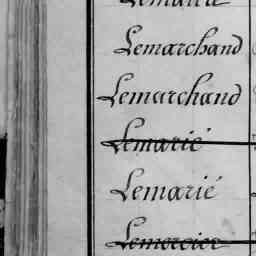 Lemarchand
Lemarchand
Lemarié
Lemarié
Lemercier